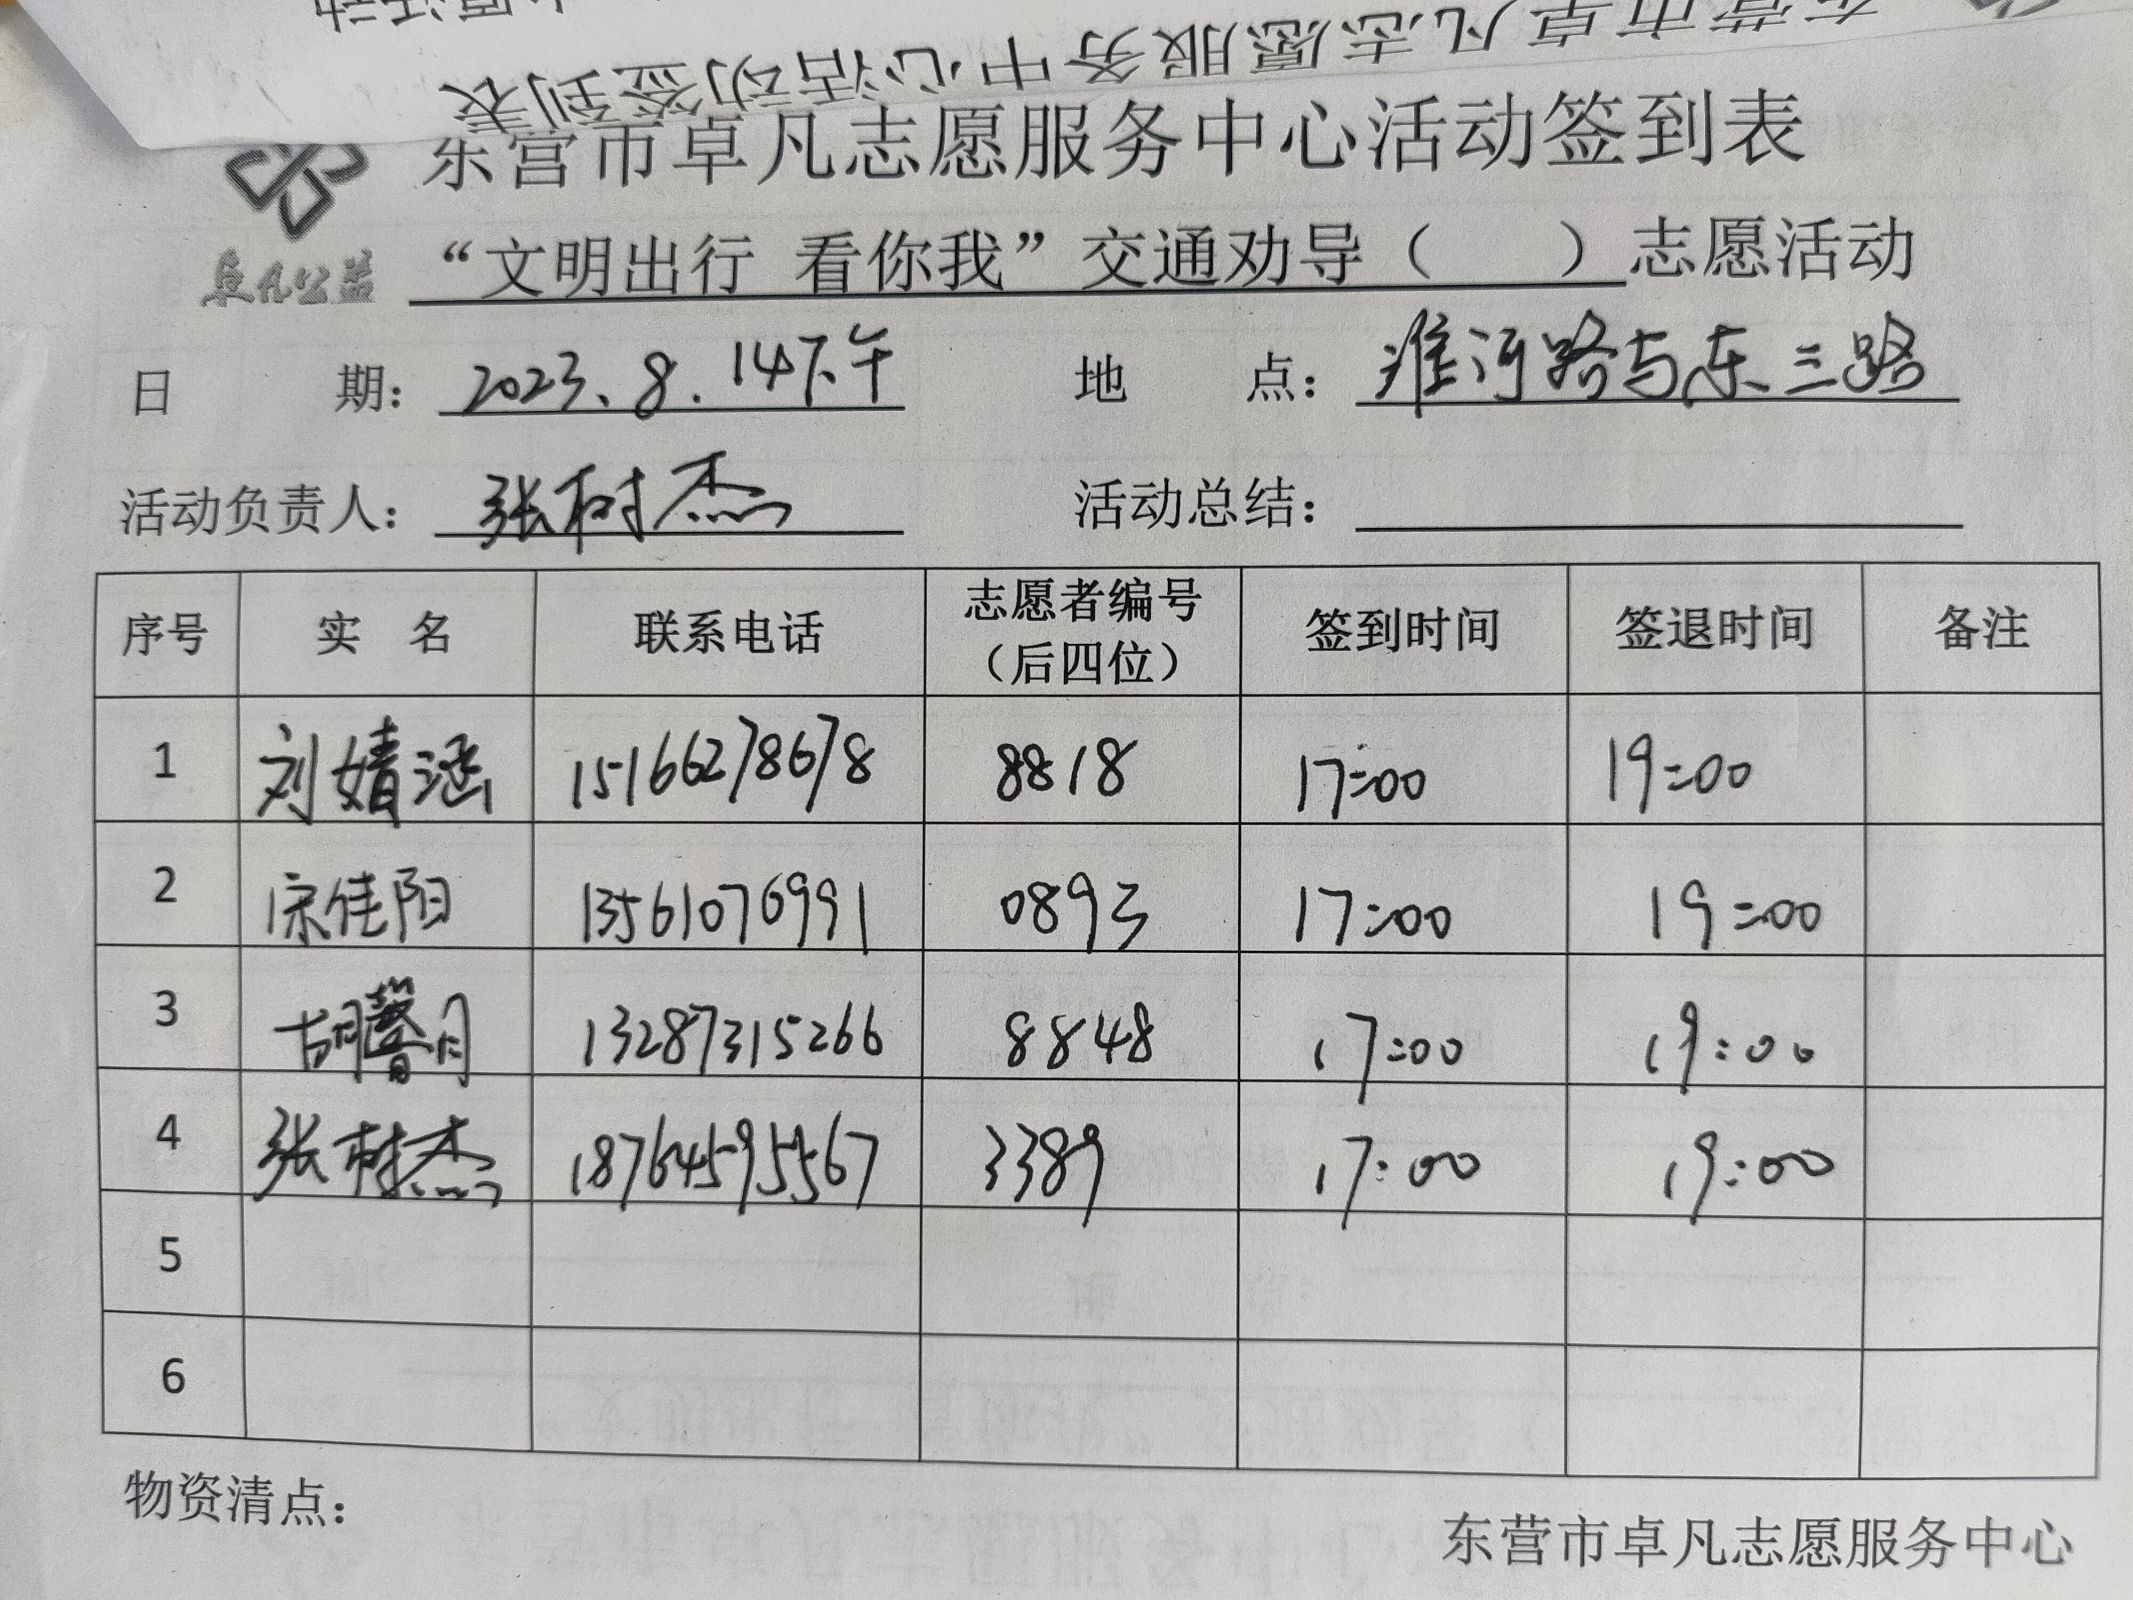 志愿活动
东营市卓凡志愿服务中心活动签到表
东营市卓凡志愿服务中心活动签到表
卓凡公益
“文明出行 看你我”交通劝导（ ）志愿活动
日 期： 2023.8.14下午 地 点： 淮河路与东三路
活动负责人： 张树杰 活动总结：
序号 实 名 联系电话 志愿者编号（后四位） 签到时间 签退时间 备注
1 刘婧涵 15166278678 8818 17:00 19:00
2 宋佳阳 13561076991 0893 17:00 19:00
3 胡馨月 13287315266 8848 17:00 19:00
4 张树杰 18764595567 3389 17:00 19:00
5
6
物资清点：
东营市卓凡志愿服务中心